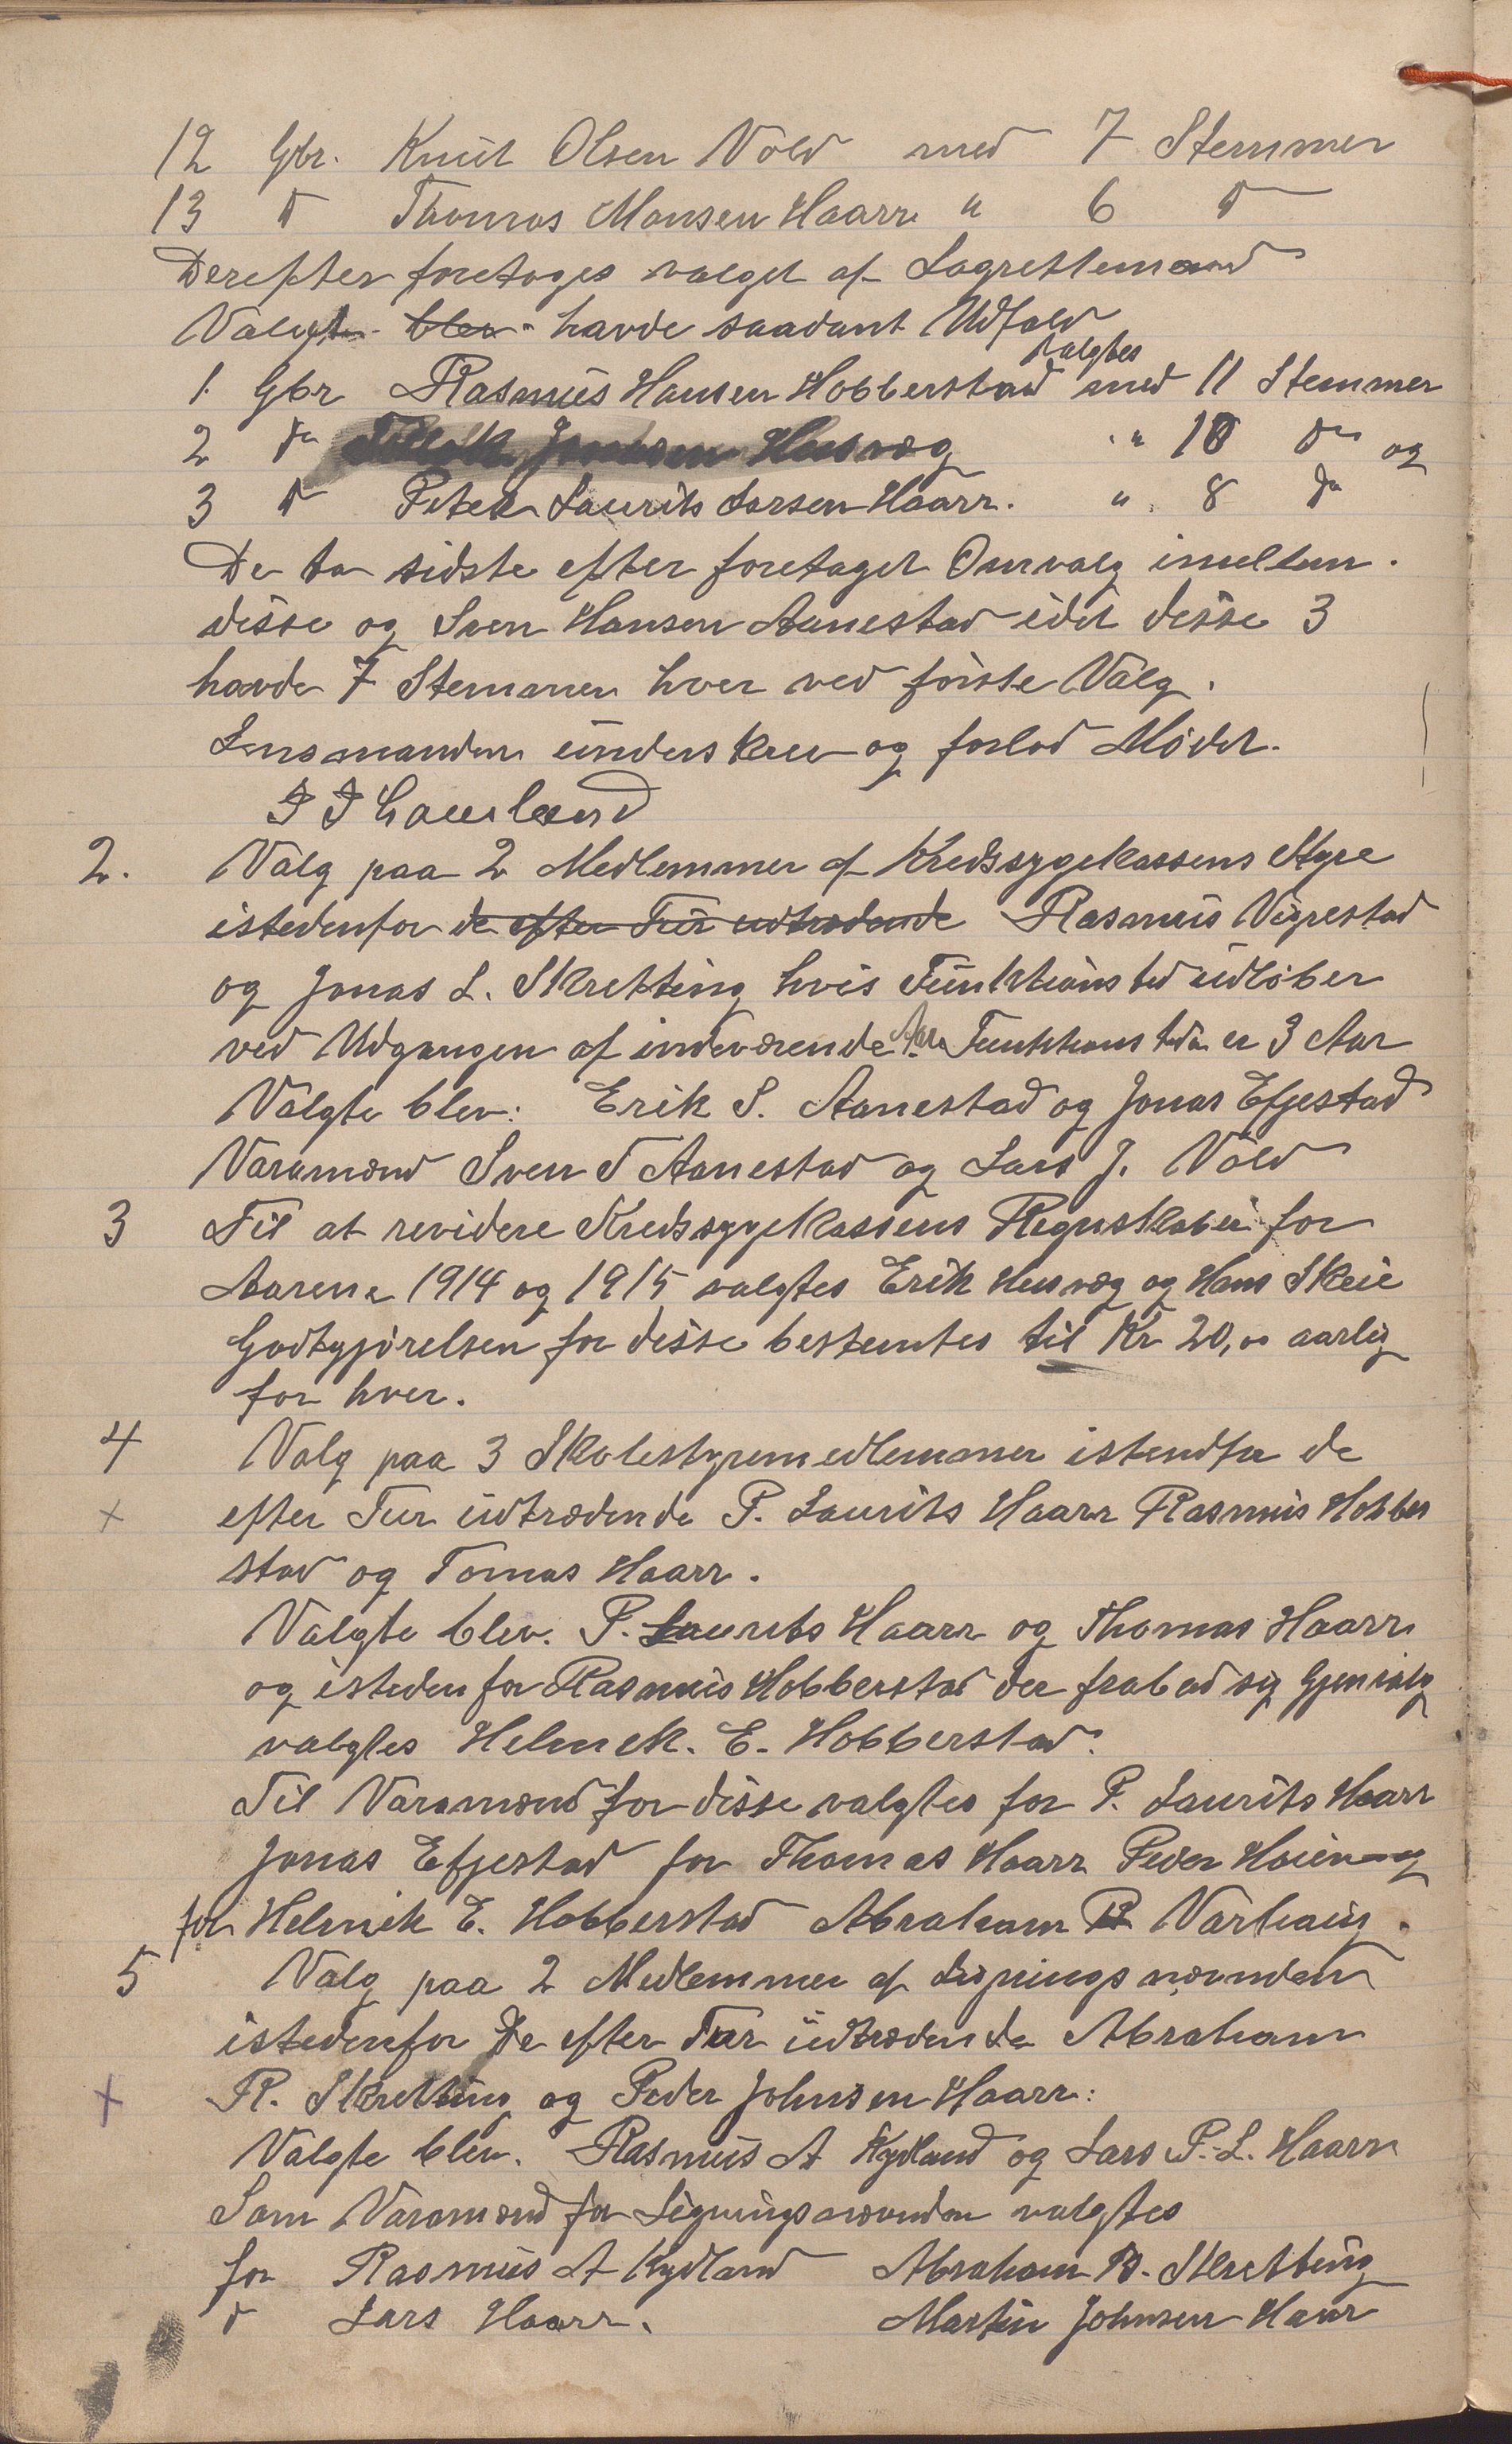 12 Gbr. Knut Olsen Vold med 7 Stemmer
13 D Thomas Monsen Haarr " 6 D
Derefter foretoges valget af Lagrettemænd
Valgte blev havde saadant Udfald
valgtes
1. Gbr Rasmus Hansen Hobberstad med 11 Stemmer
2 Do Tollak Jonasen Husvæg " 10 Do og
3 D Peter Laurits Larsen Haarr. " 8 Do
De to sidste efter foretaget Omvalg imellem
disse og Sven Hansen Aanestad idet disse 3
havde 7 Stemmer hver ved første Valg.
Lensmanden underskrev og forlod Mødet.
2. Valg paa 2 Medlemmer af Kredssygekassens Styre
istedenfor de efter Tur udtrædende Rasmus Vigrestad
og Jonas L. Skretting hvis Funktionstid udløber
ved Udgangen af indeværende Aar. Funktionstiden er 3 Aar
Valgte blev: Erik S. Aanestad og Jonas Efjestad
Varamænd Sven T Aanestad og Lars J. Vold
3 Til at revidere Kredssygekassens Regnskaber for
Aarene 1914 og 1915 valgtes Erik Husvæg og Hans Skeie
Godtgjørelsen for disse bestemtes til Kr 20,00 aarlig
for hver.
4 Valg paa 3 Skolestyremedlemmer istendfor de
+ efter Tur udtrædende P. Laurits Haarr Rasmus Hobber
stad og Tomas Haarr.
Valgte blev. P. Laurits Haarr og Thomas Haarr
og istedenfor Rasmus Hobberstad der frabad sig Gjenvalg
valgtes Helmek. E. Hobberstad.
Til Varamænd for disse valgtes for P. Laurits Haarr
Jonas Efjestad for Thomas Haarr Peder Høien og
for Helmik E. Hobberstad Abraham B Varhaug.
5 Valg paa 2 Medlemmer af Ligningsnævnden
istedenfor De efter Tur udtrædende Abraham
+ R. Skretting og Peder Johnsen Haarr:
Valgte blev. Rasmus A Kydland og Lars P. L. Haarr
Som Varamænd for Ligningsnævnden valgtes
for Rasmus A Kydland Abraham R. Skretting
D Lars Haarr. Martin Johnsen Haar